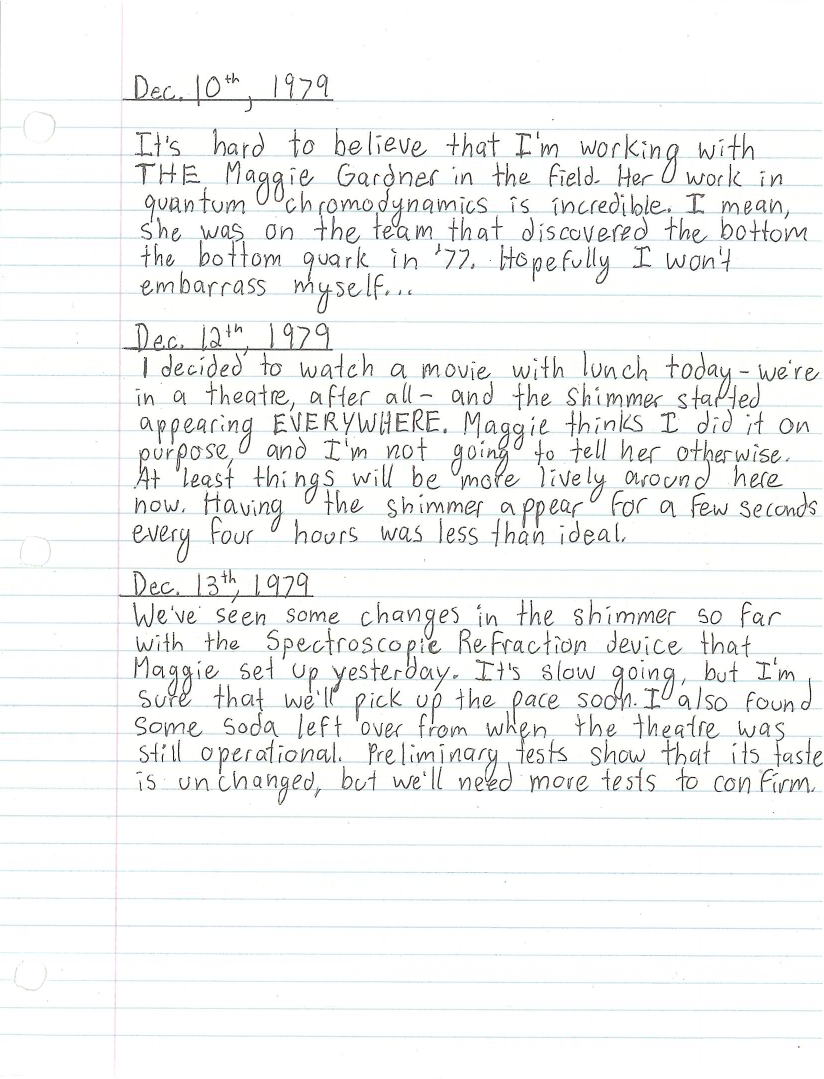 Dec. 10th, 1979
It's hard to believe that I'm working with
THE Maggie Gardner in the field. Her work in
quantum chromodynamics is incredible. I mean,
she was on the team that discovered the bottom
the bottom quark in '77. Hopefully I won't
embarrass myself...
Dec. 12th, 1979
I decided to watch a movie with lunch today - we're
in a theatre, after all - and the shimmer started
appearing EVERYWHERE. Maggie thinks I did it on
purpose, and I'm not going to tell her otherwise.
At least things will be more lively around here
now. Having the shimmer appear for a few seconds
every four hours was less than ideal.
Dec. 13th, 1979
We've seen some changes in the shimmer so far
with the Spectroscopic Refraction device that
Maggie set up yesterday. It's slow going, but I'm
sure that we'll pick up the pace soon. I also found
some soda left over from when the theatre was
still operational. Preliminary tests show that its taste
is unchanged, but we'll need more tests to confirm.